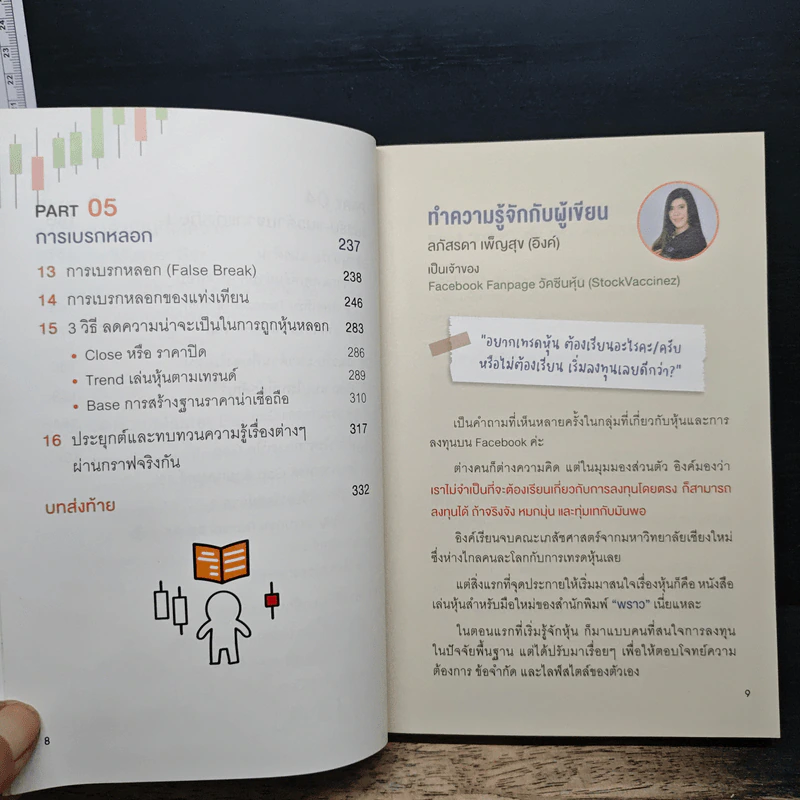 22
23
24
PART 05
การเบรกหลอก 237
13 การเบรกหลอก (False Break) 238
14 การเบรกหลอกของแท่งเทียน 246
15 3 วิธี ลดความน่าจะเป็นในการถูกหุ้นหลอก 283
• Close หรือ ราคาปิด 286
• Trend เล่นหุ้นตามเทรนด์ 289
• Base การสร้างฐานราคาน่าเชื่อถือ 310
16 ประยุกต์และทบทวนความรู้เรื่องต่างๆ 317
ผ่านกราฟจริงกัน
บทส่งท้าย 332
8
ทำความรู้จักกับผู้เขียน
ลภัสรดา เพ็ญสุข (อิงค์)
เป็นเจ้าของ
Facebook Fanpage วัคซีนหุ้น (StockVaccinez)
"อยากเทรดหุ้น ต้องเรียนอะไรคะ/ครับ
หรือไม่ต้องเรียน เริ่มลงทุนเลยดีกว่า?"
เป็นคำถามที่เห็นหลายครั้งในกลุ่มที่เกี่ยวกับหุ้นและการ
ลงทุนบน Facebook ค่ะ
ต่างคนก็ต่างความคิด แต่ในมุมมองส่วนตัว อิงค์มองว่า
เราไม่จำเป็นที่จะต้องเรียนเกี่ยวกับการลงทุนโดยตรง ก็สามารถ
ลงทุนได้ ถ้าจริงจัง หมกมุ่น และทุ่มเทกับมันพอ
อิงค์เรียนจบคณะเภสัชศาสตร์จากมหาวิทยาลัยเชียงใหม่
ซึ่งห่างไกลคนละโลกกับการเทรดหุ้นเลย
แต่สิ่งแรกที่จุดประกายให้เริ่มมาสนใจเรื่องหุ้นก็คือ หนังสือ
เล่นหุ้นสำหรับมือใหม่ของสำนักพิมพ์ "พราว" เนี่ยแหละ
ในตอนแรกที่เริ่มรู้จักหุ้น ก็มาแบบคนที่สนใจการลงทุน
ในปัจจัยพื้นฐาน แต่ได้ปรับมาเรื่อยๆ เพื่อให้ตอบโจทย์ความ
ต้องการ ข้อจำกัด และไลฟ์สไตล์ของตัวเอง
9